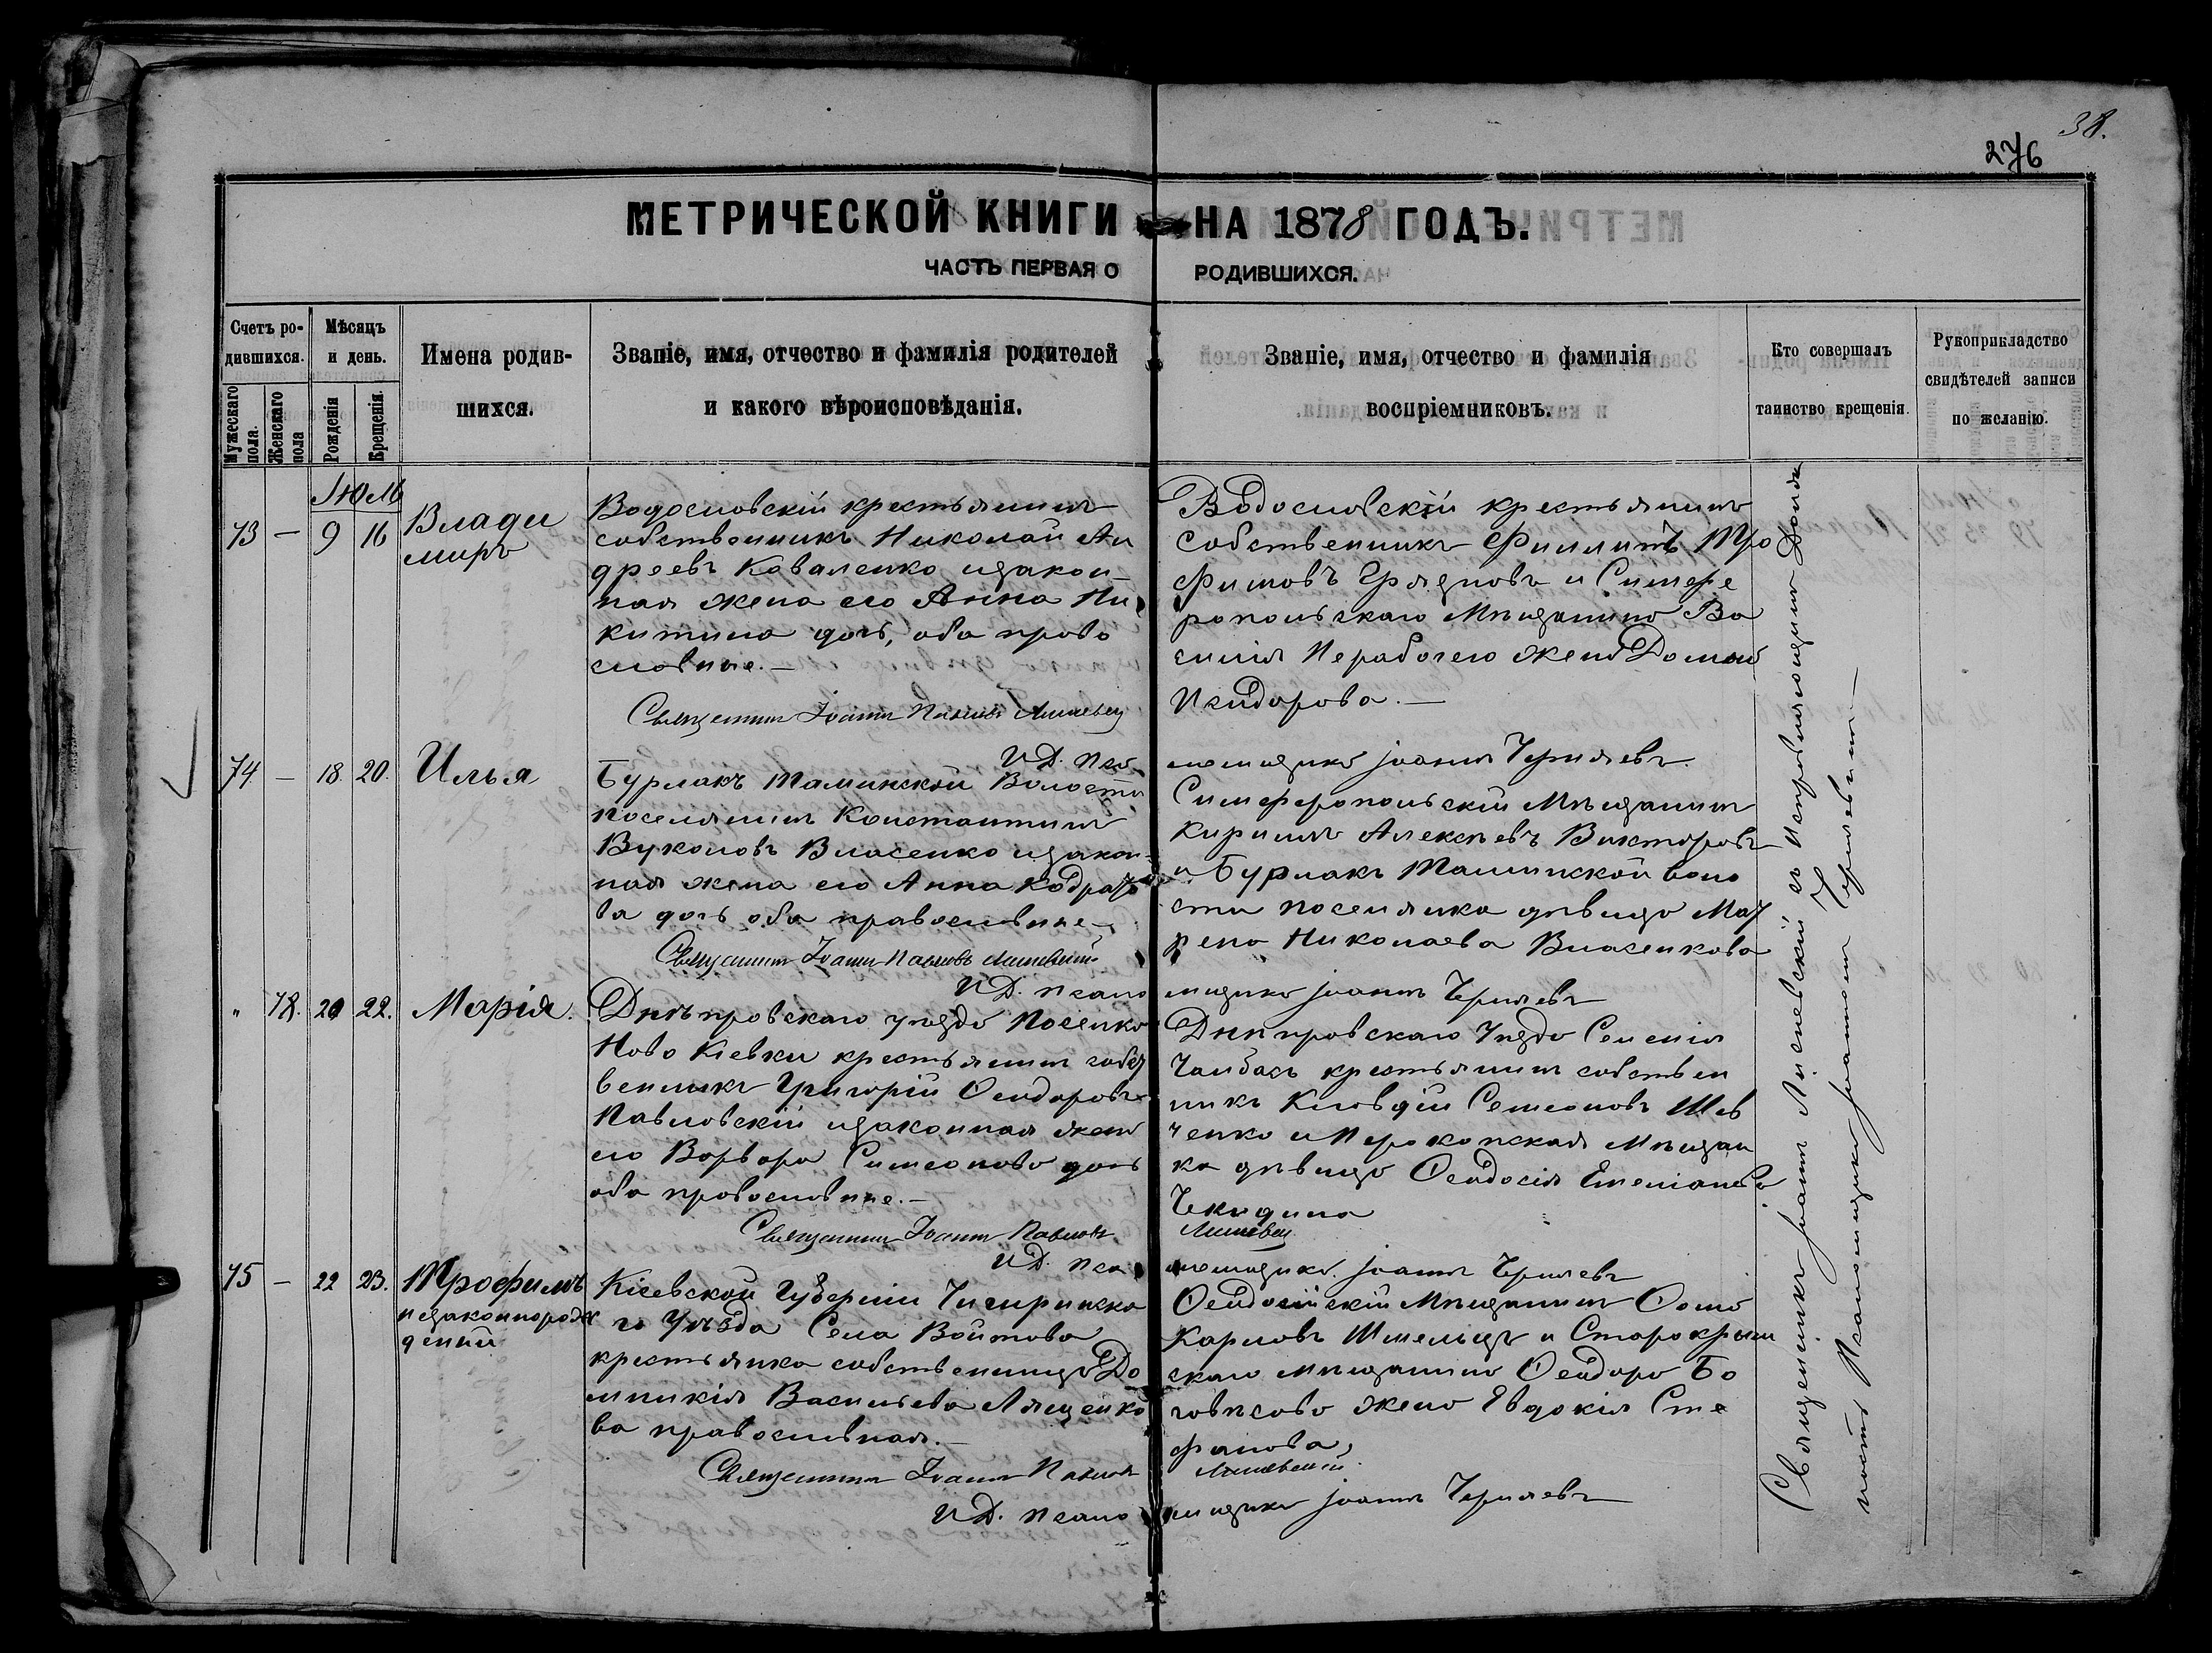 38.
276
МЕТРИЧЕСКОЙ КНИГИ НА 1878 ГОДЪ.
ЧАСТЬ ПЕРВАЯ О РОДИВШИХСЯ.
Счетъ ро-
дившихся.
Мужескаго
пола.
Женскаго
пола
Мѣсяцъ
и день.
Рожденія
Крещенія.
Имена родив-
шихся.
Званіе, имя, отчество и фамилія родителей
и какого вѣроисповѣданія.
Званіе, имя, отчество и фамилія
воспріемниковъ.
Кто совершалъ
таинство крещенія.
Рукоприкладство
свидѣтелей записи
по желанію.
Июль
73 — 9 16
Влади
миръ
крестьянинъ
собственникъ Николай Ан
дреевъ Коваленко изакон-
ная жена его Анна Ни
китина дочь, оба право
славные.—
Священникъ Іоаннъ Павловъ
И.Д. Псa
крестьянинъ
собственникъ Филлипъ Тро
фимовъ Гряздновъ и Симфе
ропольскаго Мѣщанина Ва
силія Нерабочего жена Домна
Исидорова.—
ломщика Іоаннъ Чернявъ
74 — 18. 20.
Илья
Бурлакъ Таминской Волости
поселянинъ Константинъ
Вуколовъ Власенко изакон-
ная жена его Анна Кодрать
ва дочь оба православные—
Священникъ Іоаннъ Павловъ
И.Д. Псало
Симферопольскій Мѣщанинъ
Кирилъ Алексѣевъ Викторовъ
и Бурлакъ Таминской воло
сти поселянка дѣвица Мат
рена Николаева Власенкова
мщика Іоаннъ Чернявъ
" 78. 20 22.
Марія.
Днѣпровскаго уѣзда Поселка
Ново Кіевки крестьянинъ собст
венникъ Григорій Ѳеодоровъ
Павловскій изаконная жена
его Варвара Симеонова дочь
оба православные.—
Священникъ Іоаннъ Павловъ
И.Д. Пса
Днѣпровскаго Уѣзда Селенія
Чалбасъ крестьянинъ собствен
никъ Клавдій Семеоновъ Шев
ченко и Перокопская Мѣщан
ка дѣвица Ѳеодосія Емеліанова
Чекидина
ломщика. Іоаннъ Чернявъ
75 — 22 23.
Трофимъ
незаконнорож
денный
Кіевской Губерніи Чигиринска
го Уѣзда Села Воитова
крестьянка собственница До
мникія Васильева Лященко
ва православная.—
Священникъ Іоаннъ Павловъ
И.Д. Псало
Ѳеодосійскій Мѣщанинъ Ѳома
Карповъ Шмельцъ и Старокрым
скаго мѣщанина Ѳеодора Бо
жена Евдокія Сте
фанова,
мщика Іоаннъ Чернявъ
Священникъ Іоаннъ